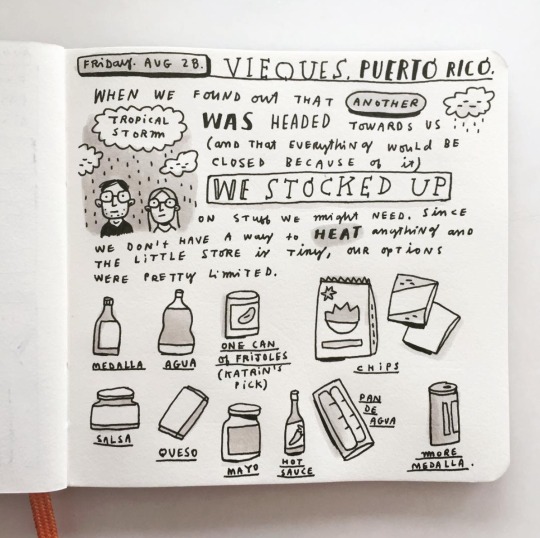 FRIDAY. AUG 28. VIEQUES, PUERTO RICO.
WHEN WE FOUND OUT THAT ANOTHER
TROPICAL
STORM
WAS HEADED TOWARDS US
(and THAT EVERYTHING WOULD BE
CLOSED BECAUSE OF it)
WE STOCKED UP
ON STUFF WE might NEED. SINCE
WE DON'T HAVE A WAY to HEAT anything and
THE LITTLE STORE is Tiny, OUR OPTIONS
WERE PRETTY LIMITED.
MEDALLA
AGUA
ONE CAN
OF FRIJOLES
(KATRIN'S
PICK)
CHIPS
SALSA
QUESO
MAYO
HOT
SAUCE
PAN
DE
AGUA
MORE
MEDALLA.